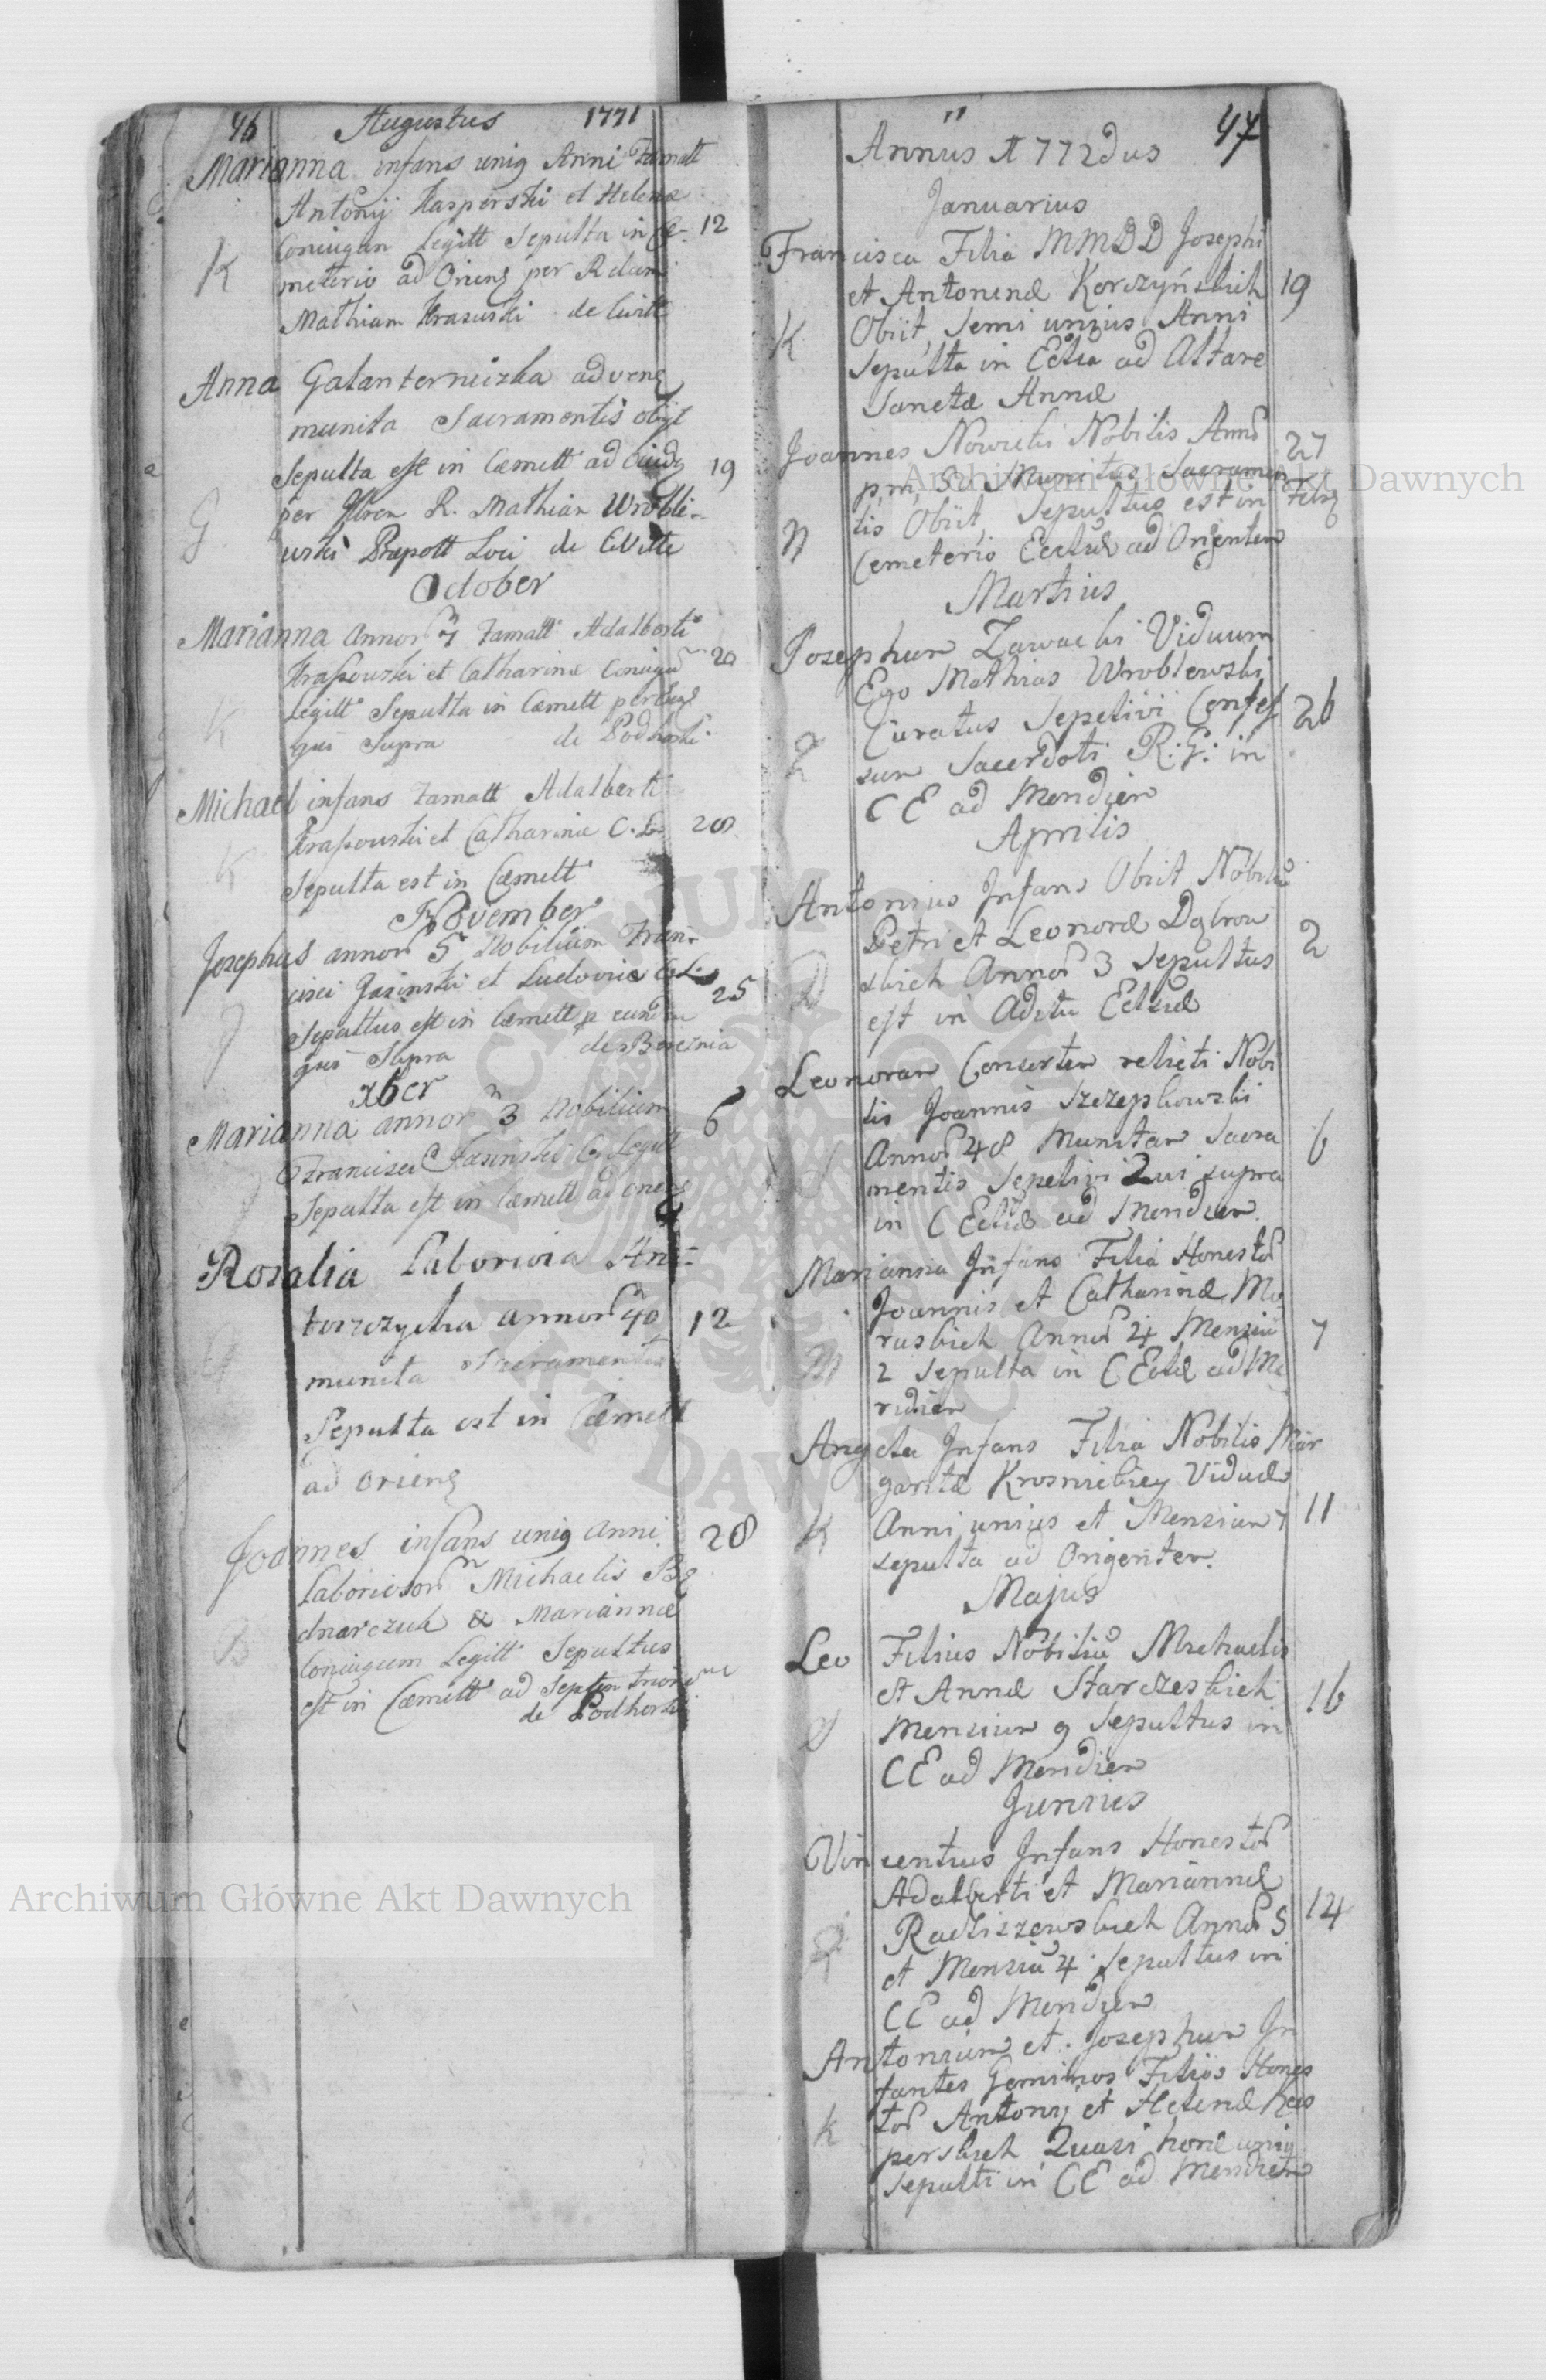 46 Augustus 1771
Marianna infans uniq Anni Famatt
Antonij Kasperski et Helenæ
Coniugan Legitt Sepulta in Cæ- 12
K meterio ad Oriens per Rdum
Mathiam Krasuski de Civitt
Anna Galanterniczka advens
munita Sacramentis obijt
Sepulta est in Cæmett ad 19
G per R. Mathian Wrobli-
uski Præpott Loci de Civitte
October
Marianna annor 7 Famatt Adalberti
Krassowski et Catharinæ Coniugu 20
Legitt Sepulta in Cæmett per
K qui Supra de Podhorski
Michael infans Famatt Adalberti
Krassouski et Catharinæ C. L. 28
K Sepulta est in Cæmett
November
Josephus annor 5 Nobilium Fran-
cisci Jasinski et Ludovicæ C. L. 25
J Sepultus est in Cæmett p eundem
qui Supra de Brzeznia
xber
Marianna annor 3 Nobilium 6
Francisci Jasinski C. Legitt
J Sepulta est in Cæmett ad oriens
Rosalia Laboriosa
annor 40 12
munita Sacramentis
Sepulta est in Cæmett
ad oriens
Joannes infans uniq anni 28
Laborioson Michaelis Be
dnarczuk & Mariannæ
B Coniugum Legitt Sepultus
est in Cæmett ad Septentrionem
de Podhorski
47
Annus 1772dus
Januarius
Francisca Filia MMDD Josephi
et Antoninæ Korczyńskich 19
K Obiit, Semi unius Anni
Sepulta in Eclia ad Altare
Sanctæ Annæ
Joannes Nowicki Nobilis Anno 27
p, m, 30 Munitus Sacramen
tis Obiit, Sepultus est in
N Cemeterio Eccliæ ad Orienten
Martius
Josephum Zawacki Viduum
Ego Mathias Wroblewski
Curatus Sepelivi Confes 26
Z sum Sacerdoti R: G: in
CE ad Meridien
Aprilis
Antonius Infans Obiit Nobiliu
Petri et Leonoræ Dąbrow 2
D skich Annor 3 Sepultus
est in Aditu Eccliæ
Leonoran Consorten relicti Nobi
lis Joannis Szczepkowski
Annor 48 Munitan Sacra 6
S mentis Sepelivi Qui supra
in C Ecliæ ad Meridien.
Marianna Infans Filia Honestor
Joannis et Catharinæ Mo
raskich Annor 4 Mensiu 7
M 2 Sepulta in C Ecliæ ad Me
ridien
Angela Infans Filia Nobilis Mar
garitæ Krosnickiey Viduæ
K Anni unius et Mensiun 7 11
sepulta ad Orienten.
Majus
Leo Filius Nobiliu Michaelis
et Annæ Starczeskich 16
S Mensiun 9 Sepultus in
CE ad Meridien
Junius
Vincentius Infans Honestor
Adalberti et Mariannæ
R Radiszewskich Annor 5 14
et Mensiu 4 Sepultus in
CE ad Meridien
Antoniun et Josephun In
fantes Geminos Filios Hones
K tor Antonij et Helenæ Kas
perskich Quasi horæ uniq
Sepulti in CE ad Meridien
Archiwum Główne Akt Dawnych
Archiwum Główne Akt Dawnych